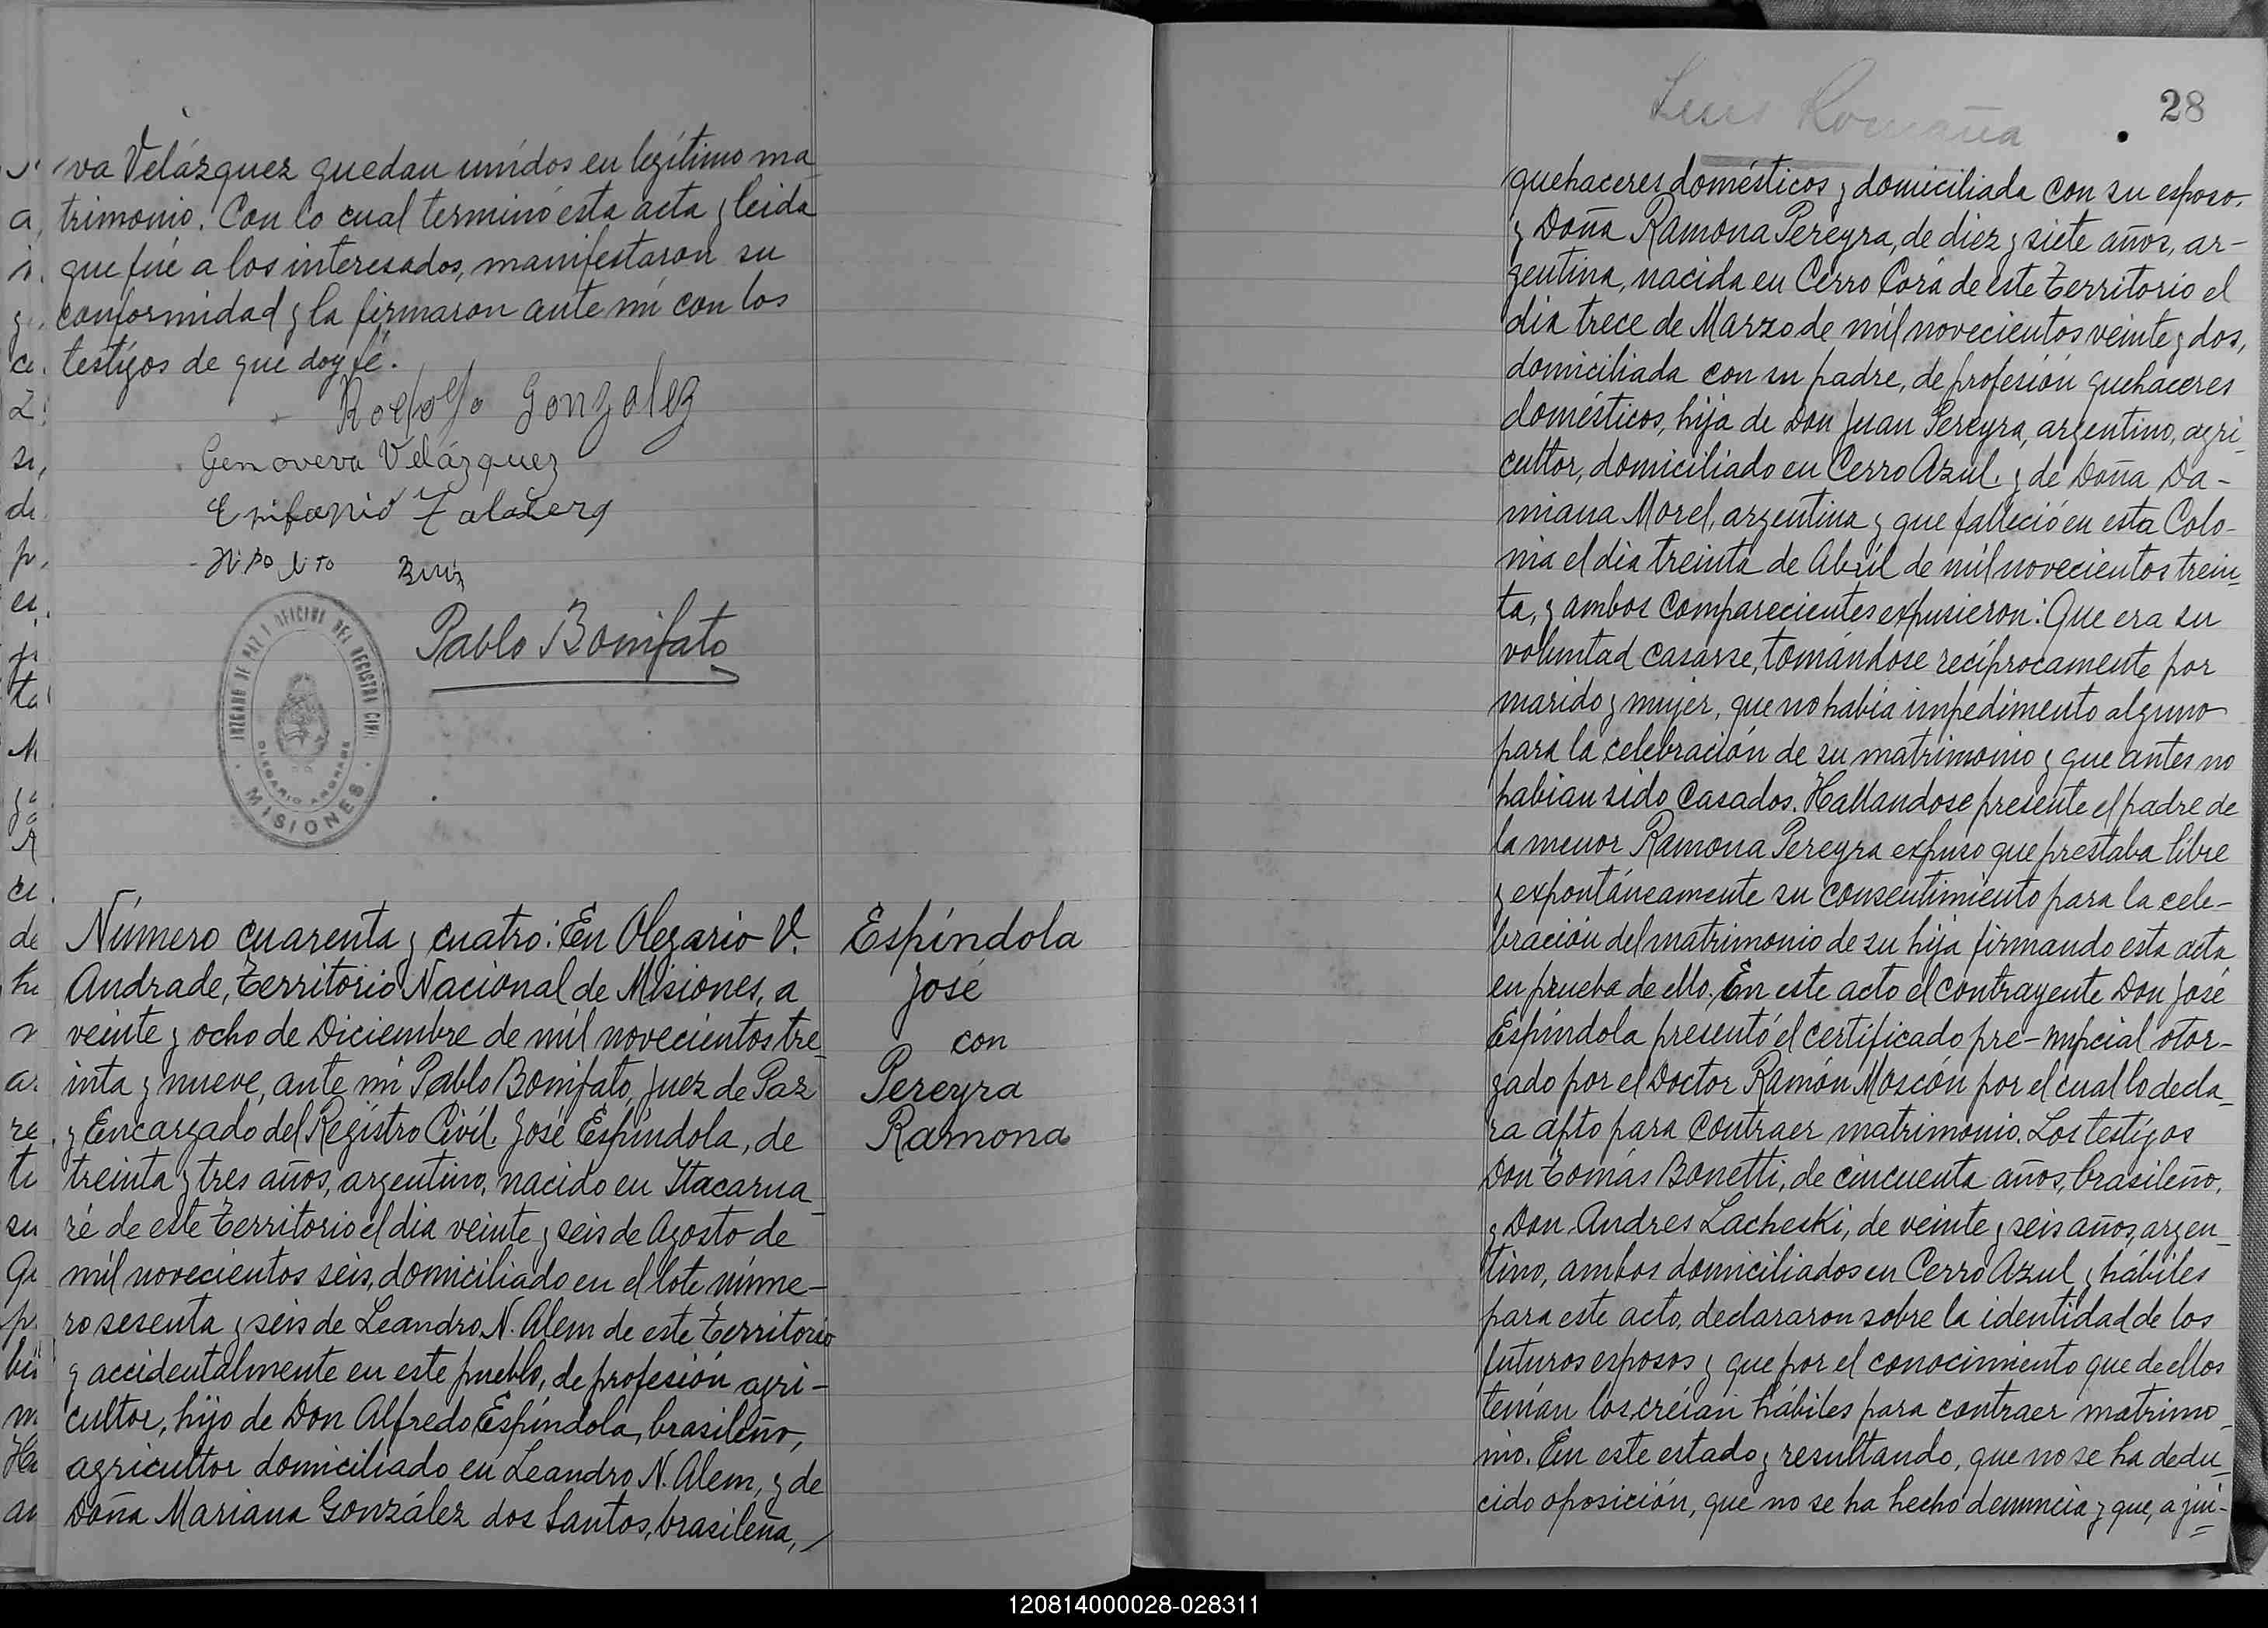 va Velázquez quedan unidos en legítimo ma
trimonio. Con lo cual terminó esta acta y leida
que fué a los interesados, manifestaron su
conformidad y la firmaron ante mi con los
testigos de que doy fé.
Rodolfo Gonzalez
Genoveva Velázquez
Epifanio
Pablo Bonifato
JUZGADO DE PAZ Y OFICINA DEL REGISTRO CIVIL
OLEGARIO ANDRADE
MISIONES
Número cuarenta y cuatro: En Olegario V.
Andrade, Territorio Nacional de Misiones, a
veinte y ocho de Diciembre de mil novecientos tre_
inta y nueve, ante mi Pablo Bonifato, Juez de Paz
y Encargado del Registro Civil. José Espíndola, de
treinta y tres años, argentino, nacido en Itacarua_
ré de este Territorio el dia veinte y seis de Agosto de
mil novecientos seis, domiciliado en el lote núme-
ro sesenta y seis de Leandro N. Alem de este Territorio
y accidentalmente en este pueblo, de profesión agri-
cultor, hijo de Don Alfredo Espíndola, brasileño,
agricultor domiciliado en Leandro N. Alem, y de
Doña Mariana González dos Santos, brasileña,
Espíndola
José
con
Pereyra
Ramona
Luis Romaña
28
quehaceres domésticos y domiciliada con su esposo.
y Doña Ramona Pereyra, de diez y siete años, ar-
gentina, nacida en Cerro Corá de este Territorio el
dia trece de Marzo de mil novecientos veinte y dos,
domiciliada con su padre, de profesión quehaceres
domésticos, hija de Don Juan Pereyra, argentino, agri_
cultor, domiciliado en Cerro Azul. y de Doña Da-
miana Morel, argentina y que falleció en esta Colo-
nia el dia treinta de Abril de mil novecientos trein_
ta, y ambos comparecientes expusieron: Que era su
voluntad casarse, tomándose recíprocamente por
marido y mujer, que no habia impedimento alguno
para la celebración de su matrimonio y que antes no
habian sido casados. Hallandose presente el padre de
la menor Ramona Pereyra expuso que prestaba libre
y expontáneamente su consentimiento para la cele-
bración del matrimonio de su hija firmando esta acta
en prueba de ello. En este acto el contrayente Don José
Espíndola presentó el certificado pre-nupcial otor-
gado por el Doctor Ramón Moscón por el cual lo decla_
ra apto para contraer matrimonio. Los testigos
Don Tomás Bonetti, de cincuenta años, brasileño,
y Don Andres Lacheski, de veinte y seis años, argen_
tino, ambos domiciliados en Cerro Azul y hábiles
para este acto, declararon sobre la identidad de los
futuros esposos y que por el conocimiento que de ellos
tenían los creían hábiles para contraer matrimo_
nio. En este estado y resultando, que no se ha dedu_
cido oposición, que no se ha hecho denuncia y que, a jui-
120814000028-028311